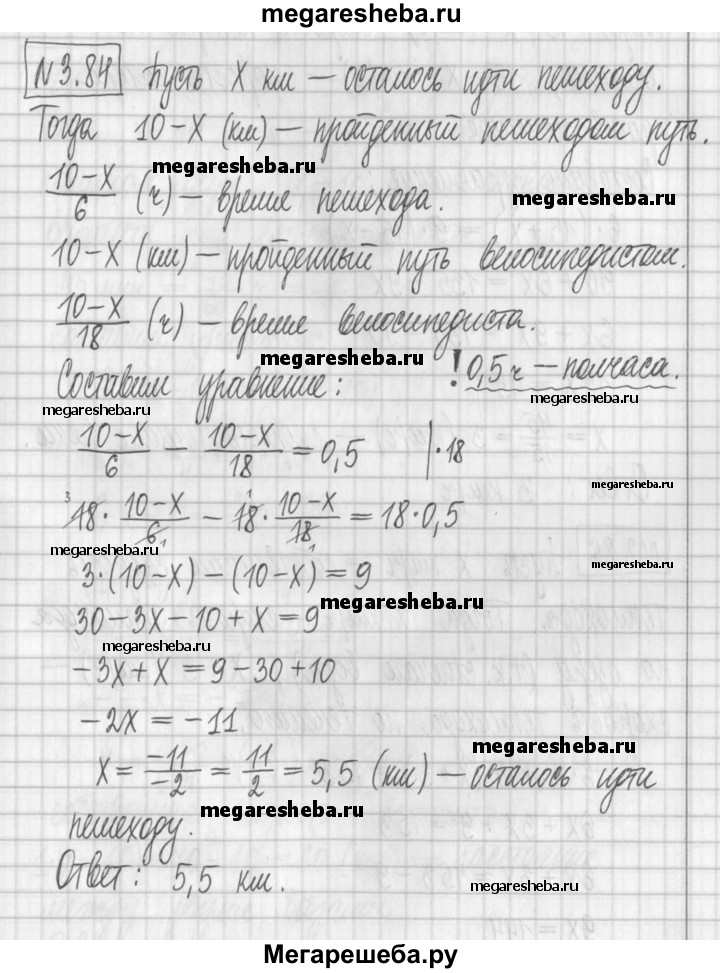 megaresheba.ru
N 3.84 Пусть x км — осталось идти пешеходу.
Тогда 10-x (км) — пройденный пешеходом путь.
megaresheba.ru
(10-x)/6 (ч) — время пешехода.
megaresheba.ru
10-x (км) — пройденный путь велосипедистом.
(10-x)/18 (ч) — время велосипедиста.
megaresheba.ru
Составим уравнение: ! 0,5 ч — полчаса.
megaresheba.ru
megaresheba.ru
(10-x)/6 - (10-x)/18 = 0,5 |·18
megaresheba.ru
³18 · (10-x)/6₁ - ¹18 · (10-x)/18₁ = 18·0,5
megaresheba.ru
megaresheba.ru
3·(10-x)-(10-x)=9
megaresheba.ru
30-3x-10+x=9
megaresheba.ru
-3x+x=9-30+10
-2x=-11
megaresheba.ru
x= -11/-2 = 11/2 = 5,5 (км) — осталось идти
megaresheba.ru
пешеходу.
Ответ: 5,5 км.
megaresheba.ru
Мегарешеба.ру